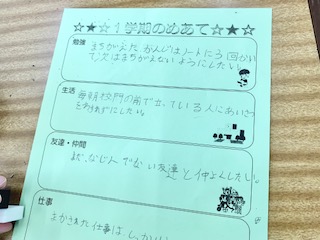 ☆★☆1学期のめあて☆★☆
勉強
まちがえた、かんじはノートに3回かい
て次はまちがえないようにしたい。
生活
毎朝校門の前で立っている人にあいさつ
をわすれずにしたい。
友達・仲間
まだ、なじんでない友達と仲よくしたい。
仕事
まかされた仕事は